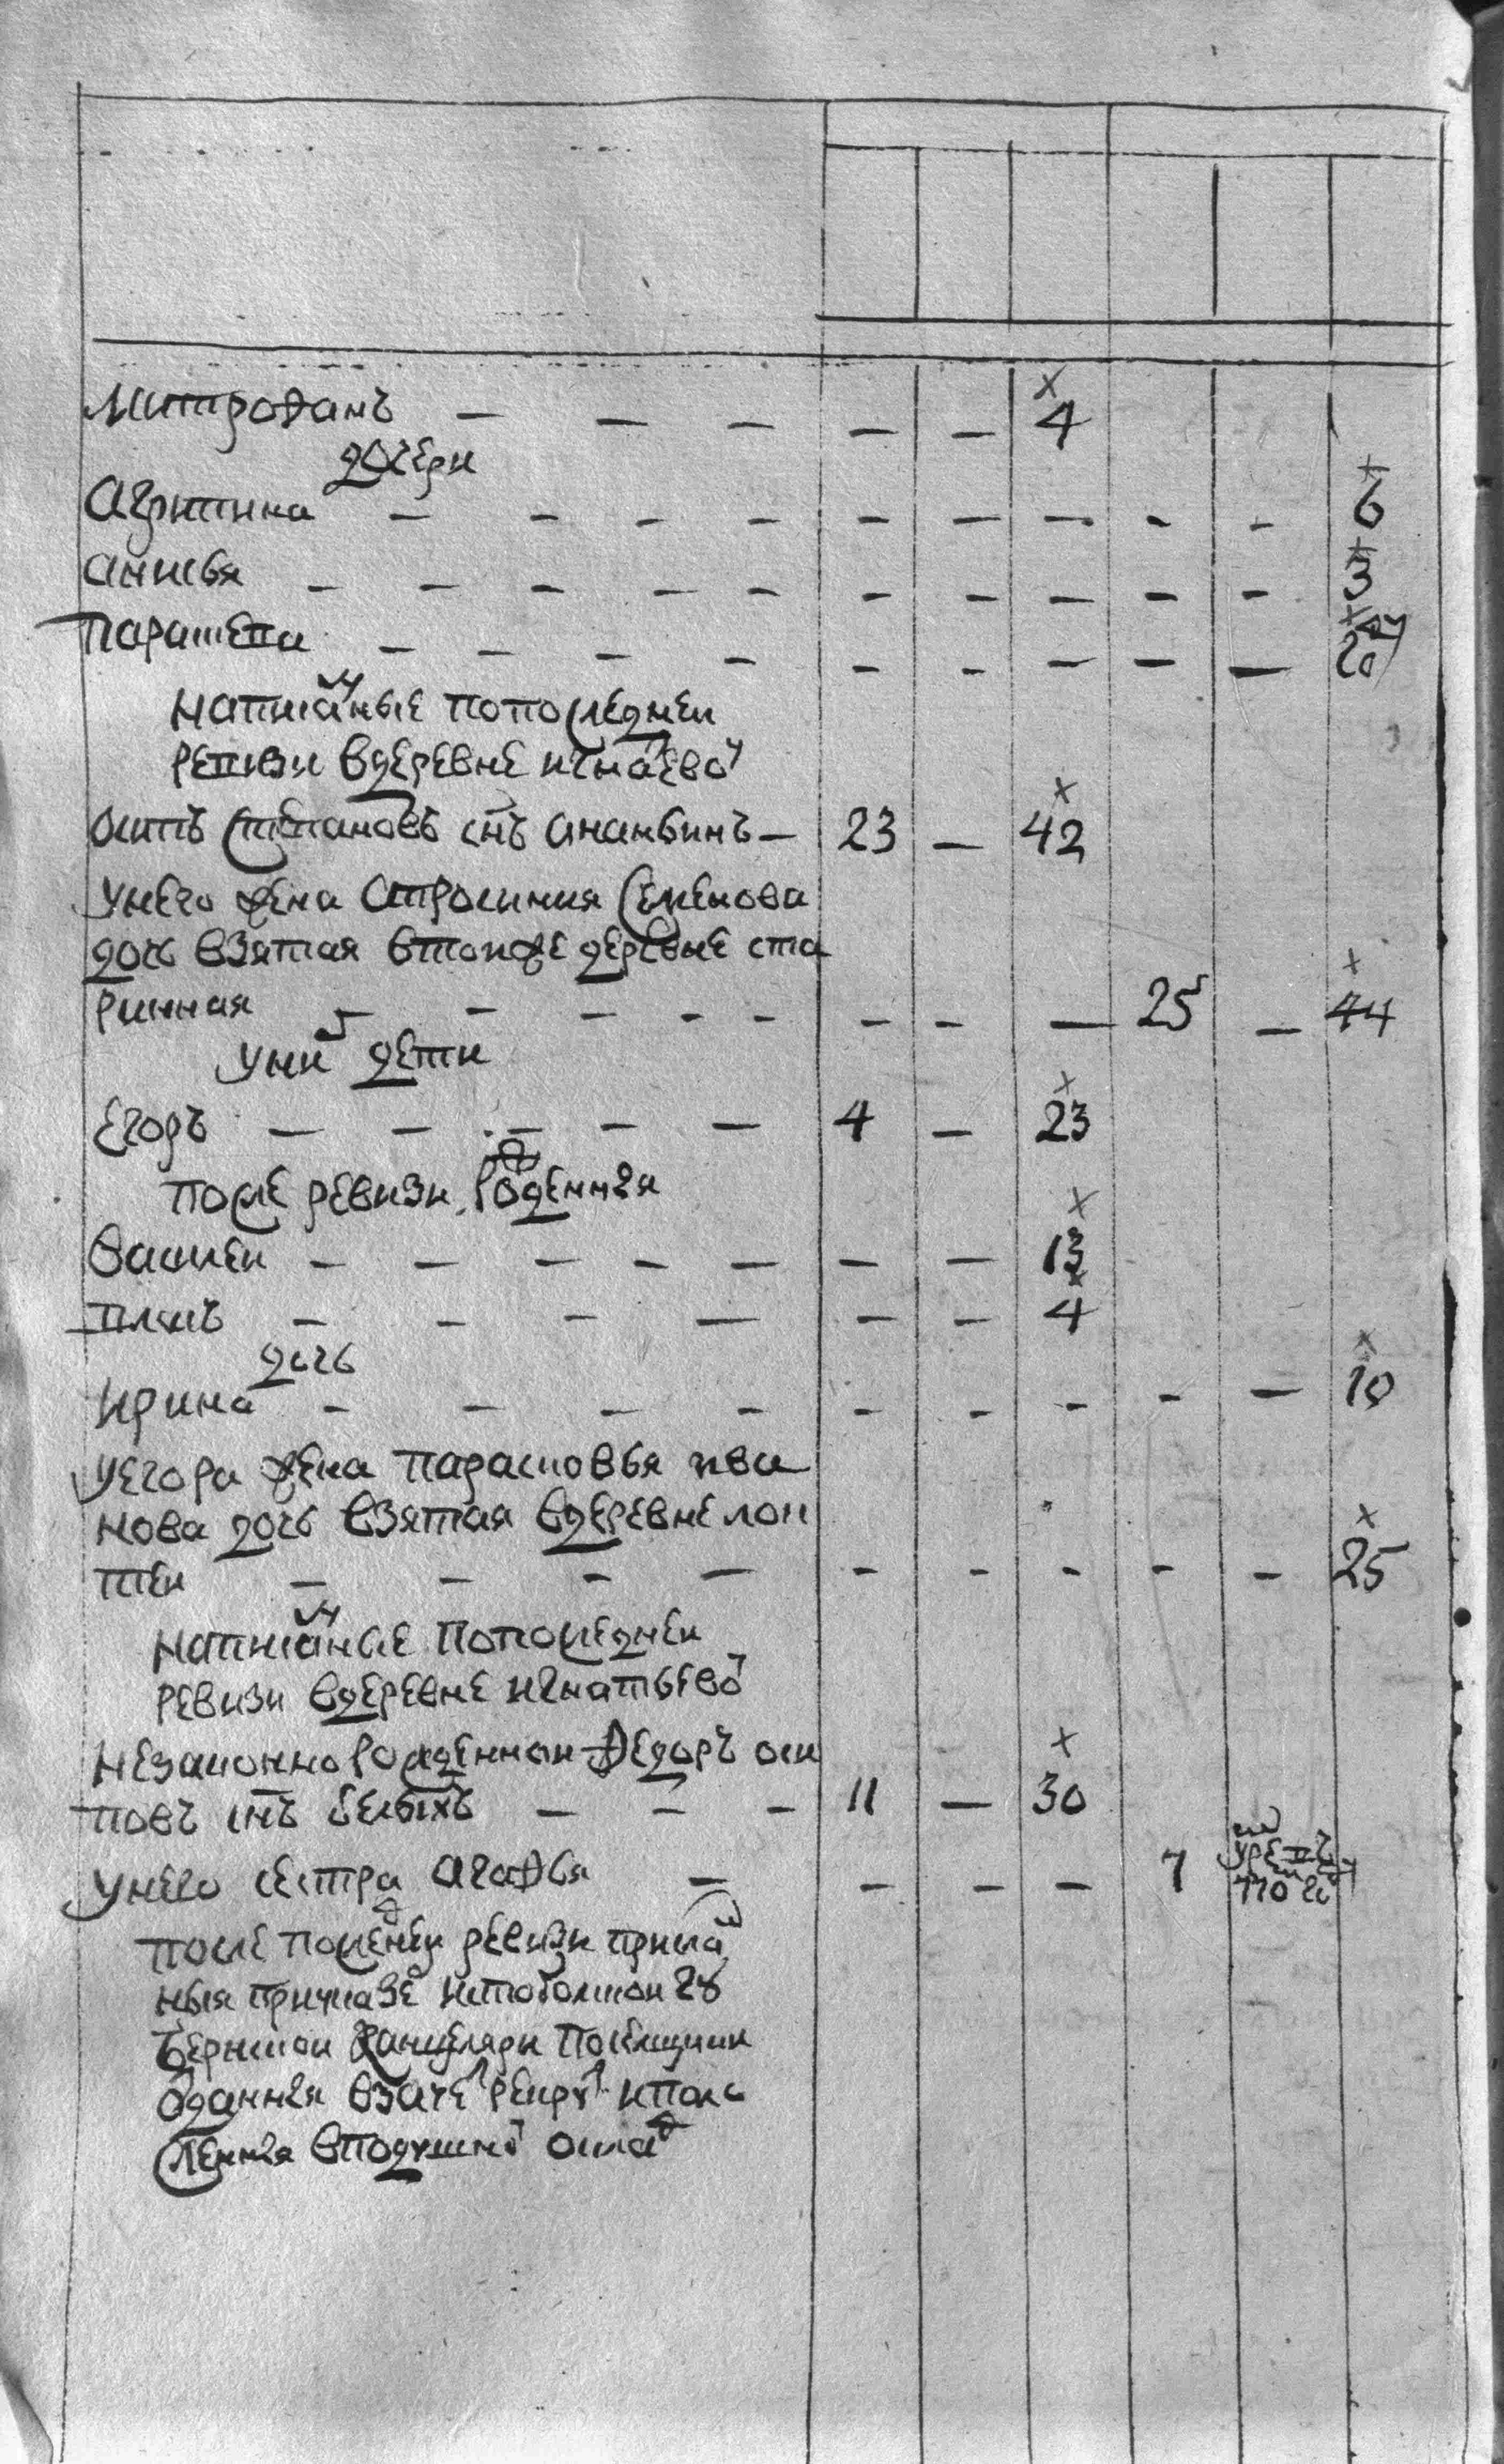 Митрофанъ — — — — — 4
дочери
Агрипина — — — — — — — - - 6
Анисья — — — — — — — — — — 3
Парасковья — — — — — — — — —
написанные попоследней
ревизи вдеревне игнатьевой
Осипъ степановъ снъ Ананьинъ — 23 — 42
унего жена Апросиния семенова
дочь взятая втойже деревне ста
ринная — — — — — — — — 25 — 44
уних дети
Егоръ — — — — — 4 — 23
после ревизи рожденныя
Василей — — — — — — — 13
Илья — — — — — — 4
дочь
Ирина — — — — — — — — — 10
уегора жена парасковья ива
нова дочь взятая вдеревне лоп
тей — — — — — — — — — 25
написанные попоследней
ревизи вдеревне игнатьевой
незаконно рожденной Федоръ оси
повъ снъ белыхъ — — — 11 — 30
унего сестра агафья — — — — 7
после последней ревизи присла
ныя приуказе истобольской гу
бернской канцеляри помещик
отданныя взачет рекрут иполо
женныя вподушной оклад